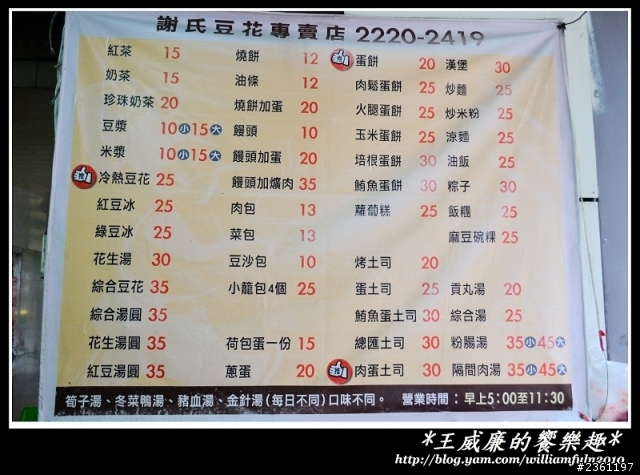 謝氏豆花專賣店 2220-2419
紅茶 15
奶茶 15
珍珠奶茶 20
豆漿 10小15大
米漿 10小15大
冷熱豆花 25
紅豆冰 25
綠豆冰 25
花生湯 30
綜合豆花 35
綜合湯圓 35
花生湯圓 35
紅豆湯圓 35
燒餅 12
油條 12
燒餅加蛋 20
饅頭 10
饅頭加蛋 20
饅頭加爌肉 35
肉包 13
菜包 13
豆沙包 10
小籠包4個 25
荷包蛋一份 15
蔥蛋 20
蛋餅 20
肉鬆蛋餅 25
火腿蛋餅 25
玉米蛋餅 25
培根蛋餅 30
鮪魚蛋餅 30
蘿蔔糕 25
烤土司 20
蛋土司 25
鮪魚蛋土司 30
總匯土司 30
肉蛋土司 30
漢堡 30
炒麵 25
炒米粉 25
涼麵 25
油飯 25
粽子 30
飯糰 25
麻豆碗粿 25
貢丸湯 20
綜合湯 25
粉腸湯 35小45大
隔間肉湯 35小45大
筍子湯、冬菜鴨湯、豬血湯、金針湯(每日不同)口味不同。 營業時間：早上5:00至11:30
*王威廉的饗樂趣*
http://blog.yam.com/williamfuln2010
#2361197